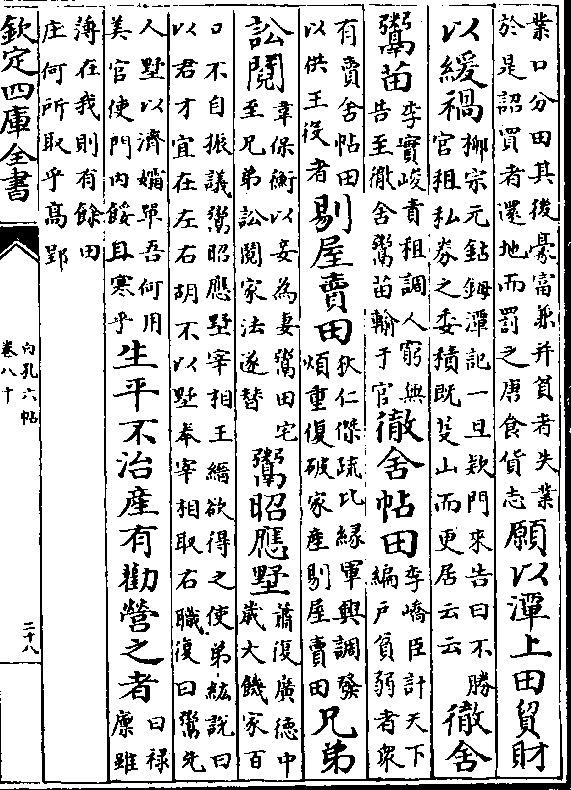 業口分田其後豪富兼并貧者失業
於是詔買者還地而罰之唐食貨志
願以潭上田貿財
以緩禍
柳宗元鈷鉧潭記一旦欵門來告曰不勝
官租私券之委積既芟山而更居云云
徹舍
鬻苗
李實峻責租調人窮無
告至徹舍鬻苗輸于官
徹舍帖田
李嶠臣計天下
編户貧弱者衆
有賣舍帖田
以供王役者
剔屋賣田
狄仁傑疏比緣軍興調發
煩重復破家産剔屋賣田
兄弟
訟鬩
韋保衡以妾為妻鬻田宅
至兄弟訟鬩家法遂替
鬻昭應墅
蕭復廣德中
歲大饑家百
口不自振議鬻昭應墅宰相王縉欲得之使弟紘說曰
以君才宜在左右胡不以墅奉宰相取右職復曰鬻先
人墅以濟孀單吾何用
美官使門内餒且寒乎
生平不治産有勸營之者
曰祿
廪雖
薄在我則有餘田
庄何所取乎高郢
欽定四庫全書
白孔六帖
卷八十
二十八